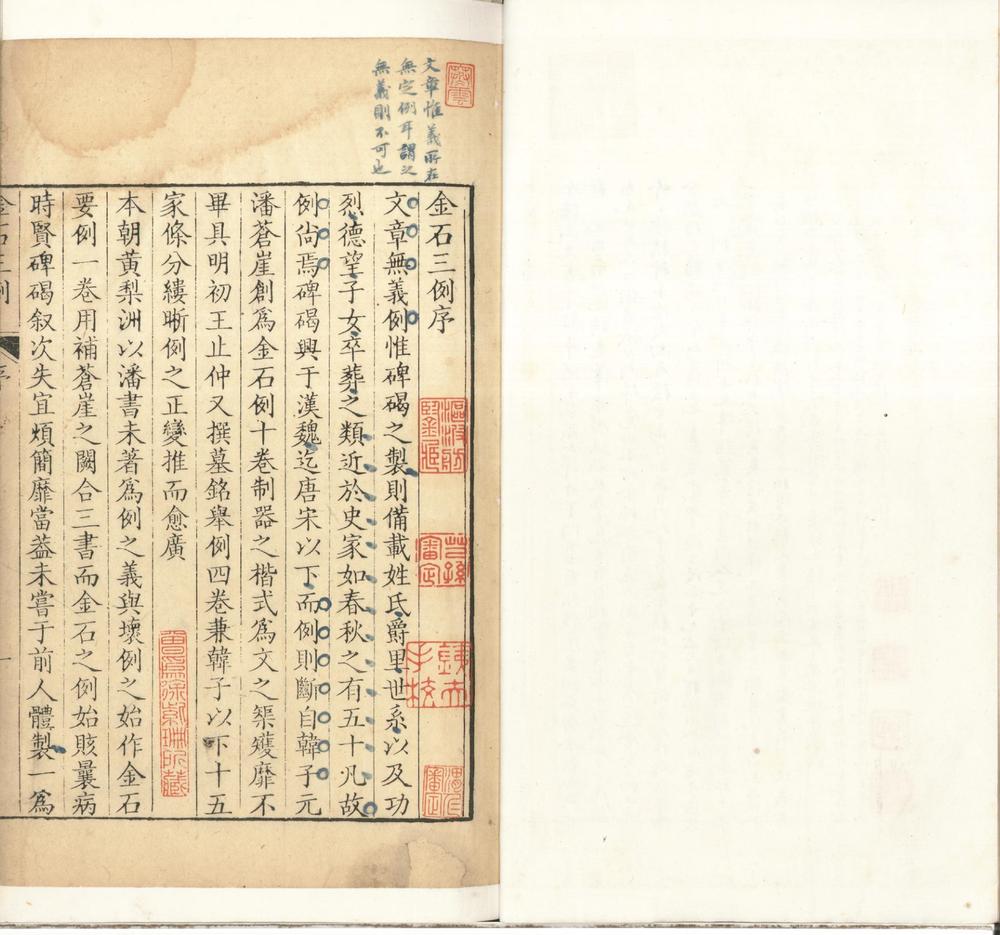 文章惟義所在
無定例耳謂之
無義則不可也
金石三例序
文章無義例惟碑碣之製則備載姓氏爵里世系以及功
烈德望子女卒葬之類近於史家如春秋之有五十凡故
例尚焉碑碣興于漢魏迄唐宋以下而例則斷自韓子元
潘蒼崖創爲金石例十卷制器之楷式爲文之榘矱靡不
畢具明初王止仲又撰墓銘舉例四卷兼韓子以下十五
家條分縷晰例之正變推而愈廣
本朝黄梨洲以潘書未著爲例之義與壞例之始作金石
要例一卷用補蒼崖之闕合三書而金石之例始賅曩病
時賢碑碣叙次失宜煩簡靡當葢未嘗于前人體製一爲
金石三例
序
一